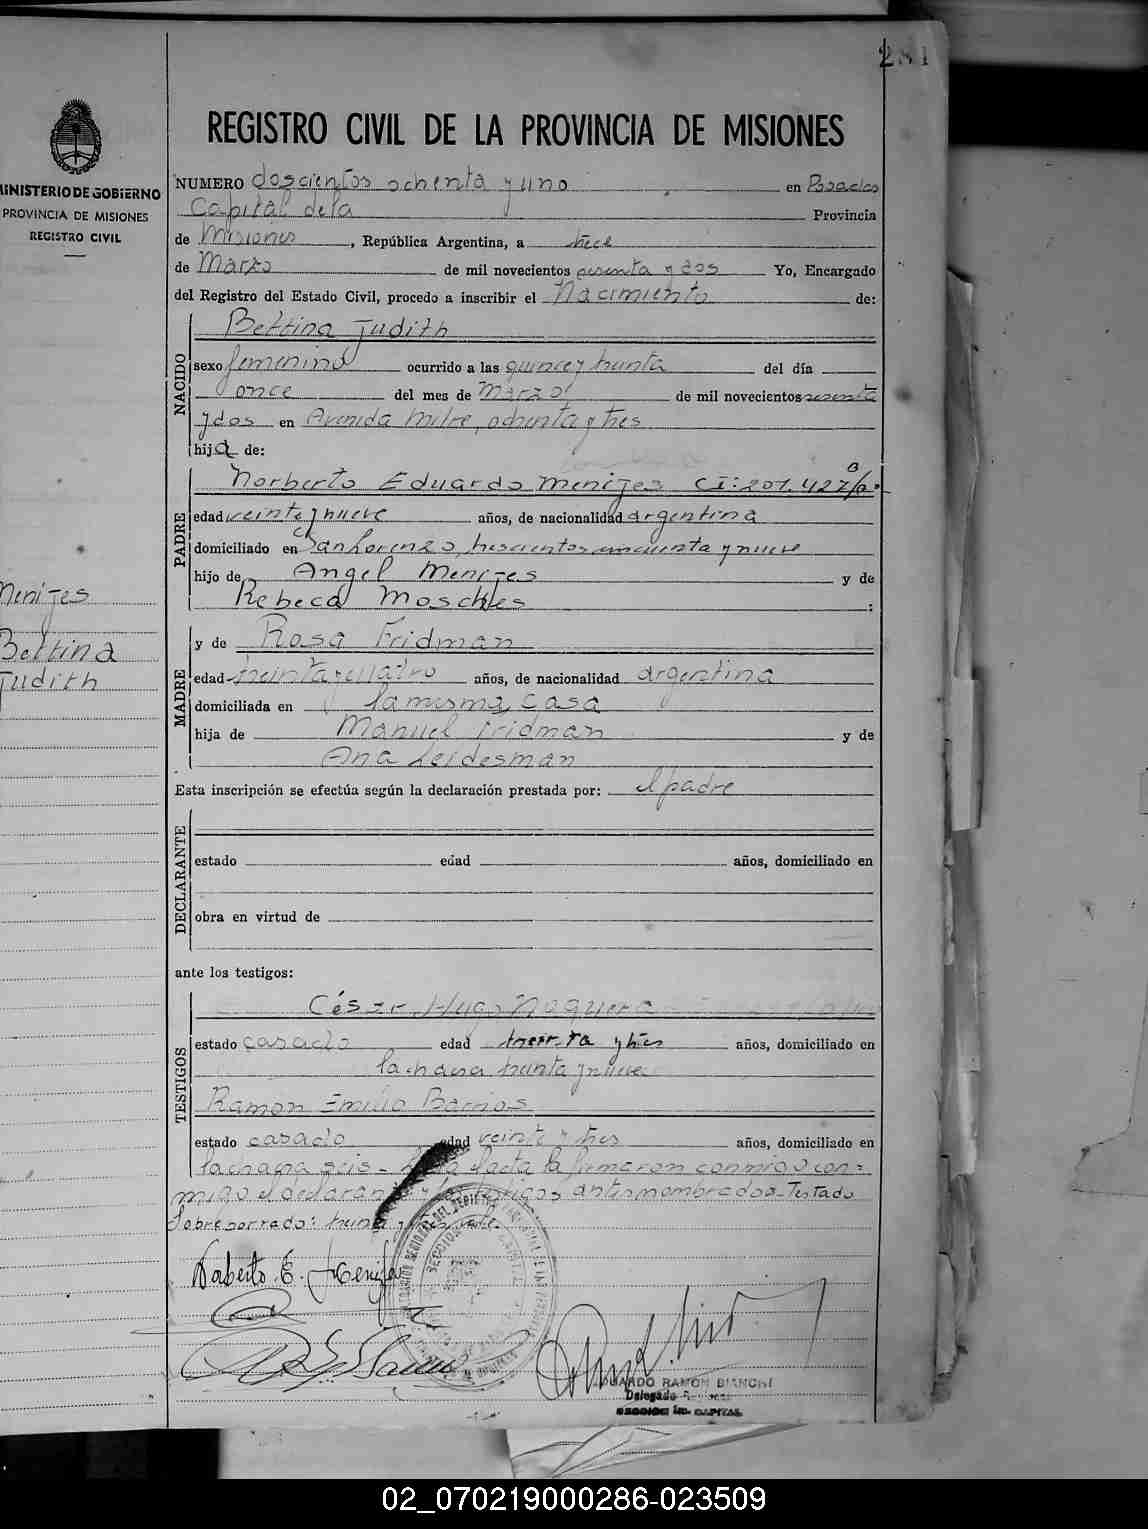 281
REGISTRO CIVIL DE LA PROVINCIA DE MISIONES
MINISTERIO DE GOBIERNO
PROVINCIA DE MISIONES
REGISTRO CIVIL
NUMERO doscientos ochenta y uno en Posadas
Capital de la Provincia
de Misiones, República Argentina, a trece
de Marzo de mil novecientos sesenta y dos Yo, Encargado
del Registro del Estado Civil, procedo a inscribir el Nacimiento de:
NACIDO
Bettina Judith
sexo femenino ocurrido a las quince y treinta del día
once del mes de Marzo de mil novecientos sesenta
y dos en Avenida Mitre, ochenta y tres
hija de:
PADRE
Norberto Eduardo Menijes CI: 201.427
edad veinte y nueve años, de nacionalidad argentina
domiciliado en San Lorenzo, trescientos cincuenta y nueve
hijo de Angel Menijes y de
Rebeca Moschles :
Menijes
Bettina
Judith
MADRE
y de Rosa Fridman
edad treinta y cuatro años, de nacionalidad argentina
domiciliada en la misma casa
hija de Manuel Fridman y de
Ana Leidesman
Esta inscripción se efectúa según la declaración prestada por: el padre
DECLARANTE
estado edad años, domiciliado en
obra en virtud de
ante los testigos:
TESTIGOS
César Hugo Noguera
estado casado edad treinta y tres años, domiciliado en
la chacra treinta y nueve
Ramon Emilio Barrios
estado casado edad veinte y tres años, domiciliado en
la chacra seis - acta la firmaron conmigo con=
migo el declarante y los testigos antes nombrados - Testado
Sobreborrado:
Norberto E. Menijes
EDUARDO RAMON BIANCHI
Delegado
SECCION CAPITAL
02_070219000286-023509